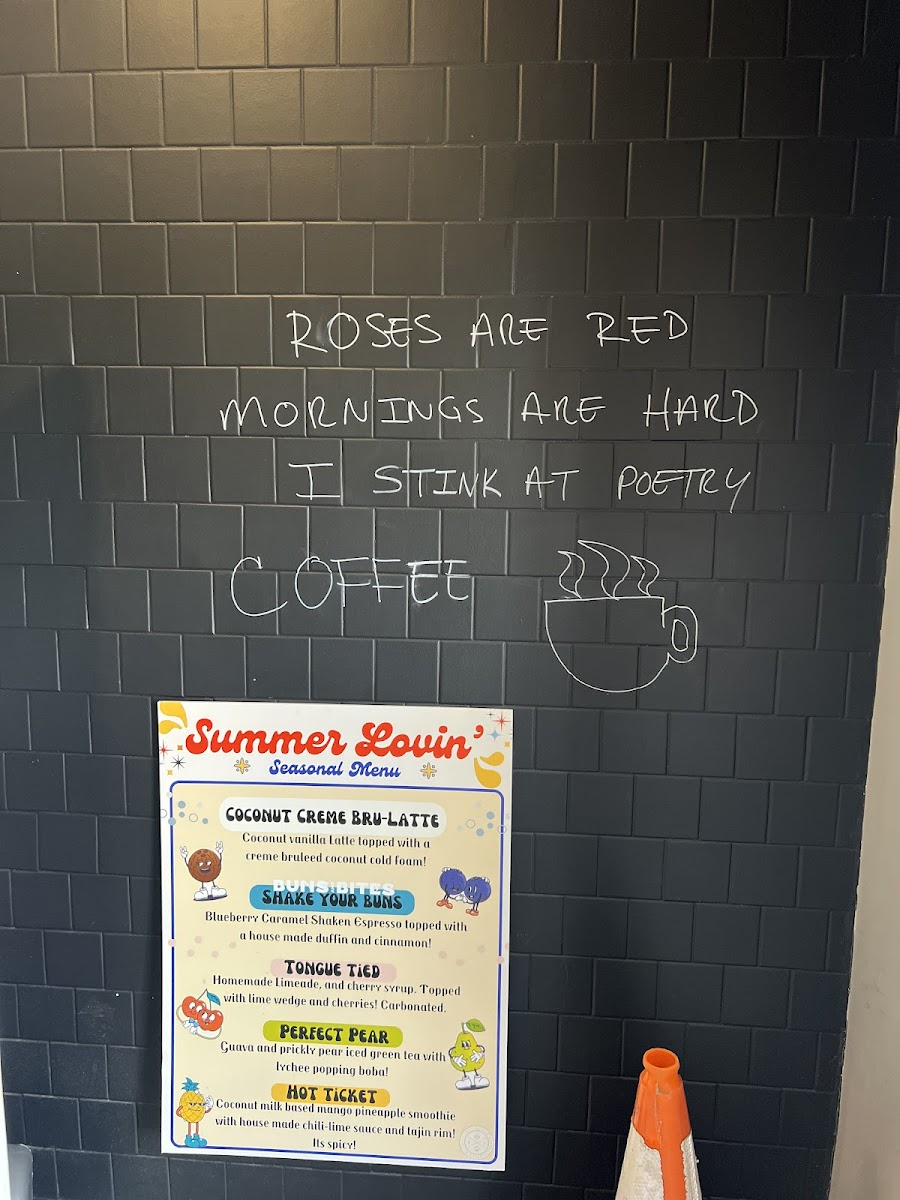 ROSES ARE RED
MORNINGS ARE HARD
I STINK AT POETRY
COFFEE
Summer Lovin'
Seasonal Menu
COCONUT CREME BRU-LATTE
Coconut vanilla Latte topped with a
creme bruleed coconut cold foam!
BUNS BITES
SHAKE YOUR BUNS
Blueberry Caramel Shaken Espresso topped with
a house made duffin and cinnamon!
TONGUE TIED
Homemade Limeade, and cherry syrup. Topped
with lime wedge and cherries! Carbonated.
PERFECT PEAR
Guava and prickly pear iced green tea with
lychee popping boba!
HOT TICKET
Coconut milk based mango pineapple smoothie
with house made chili-lime sauce and tajin rim!
Its spicy!